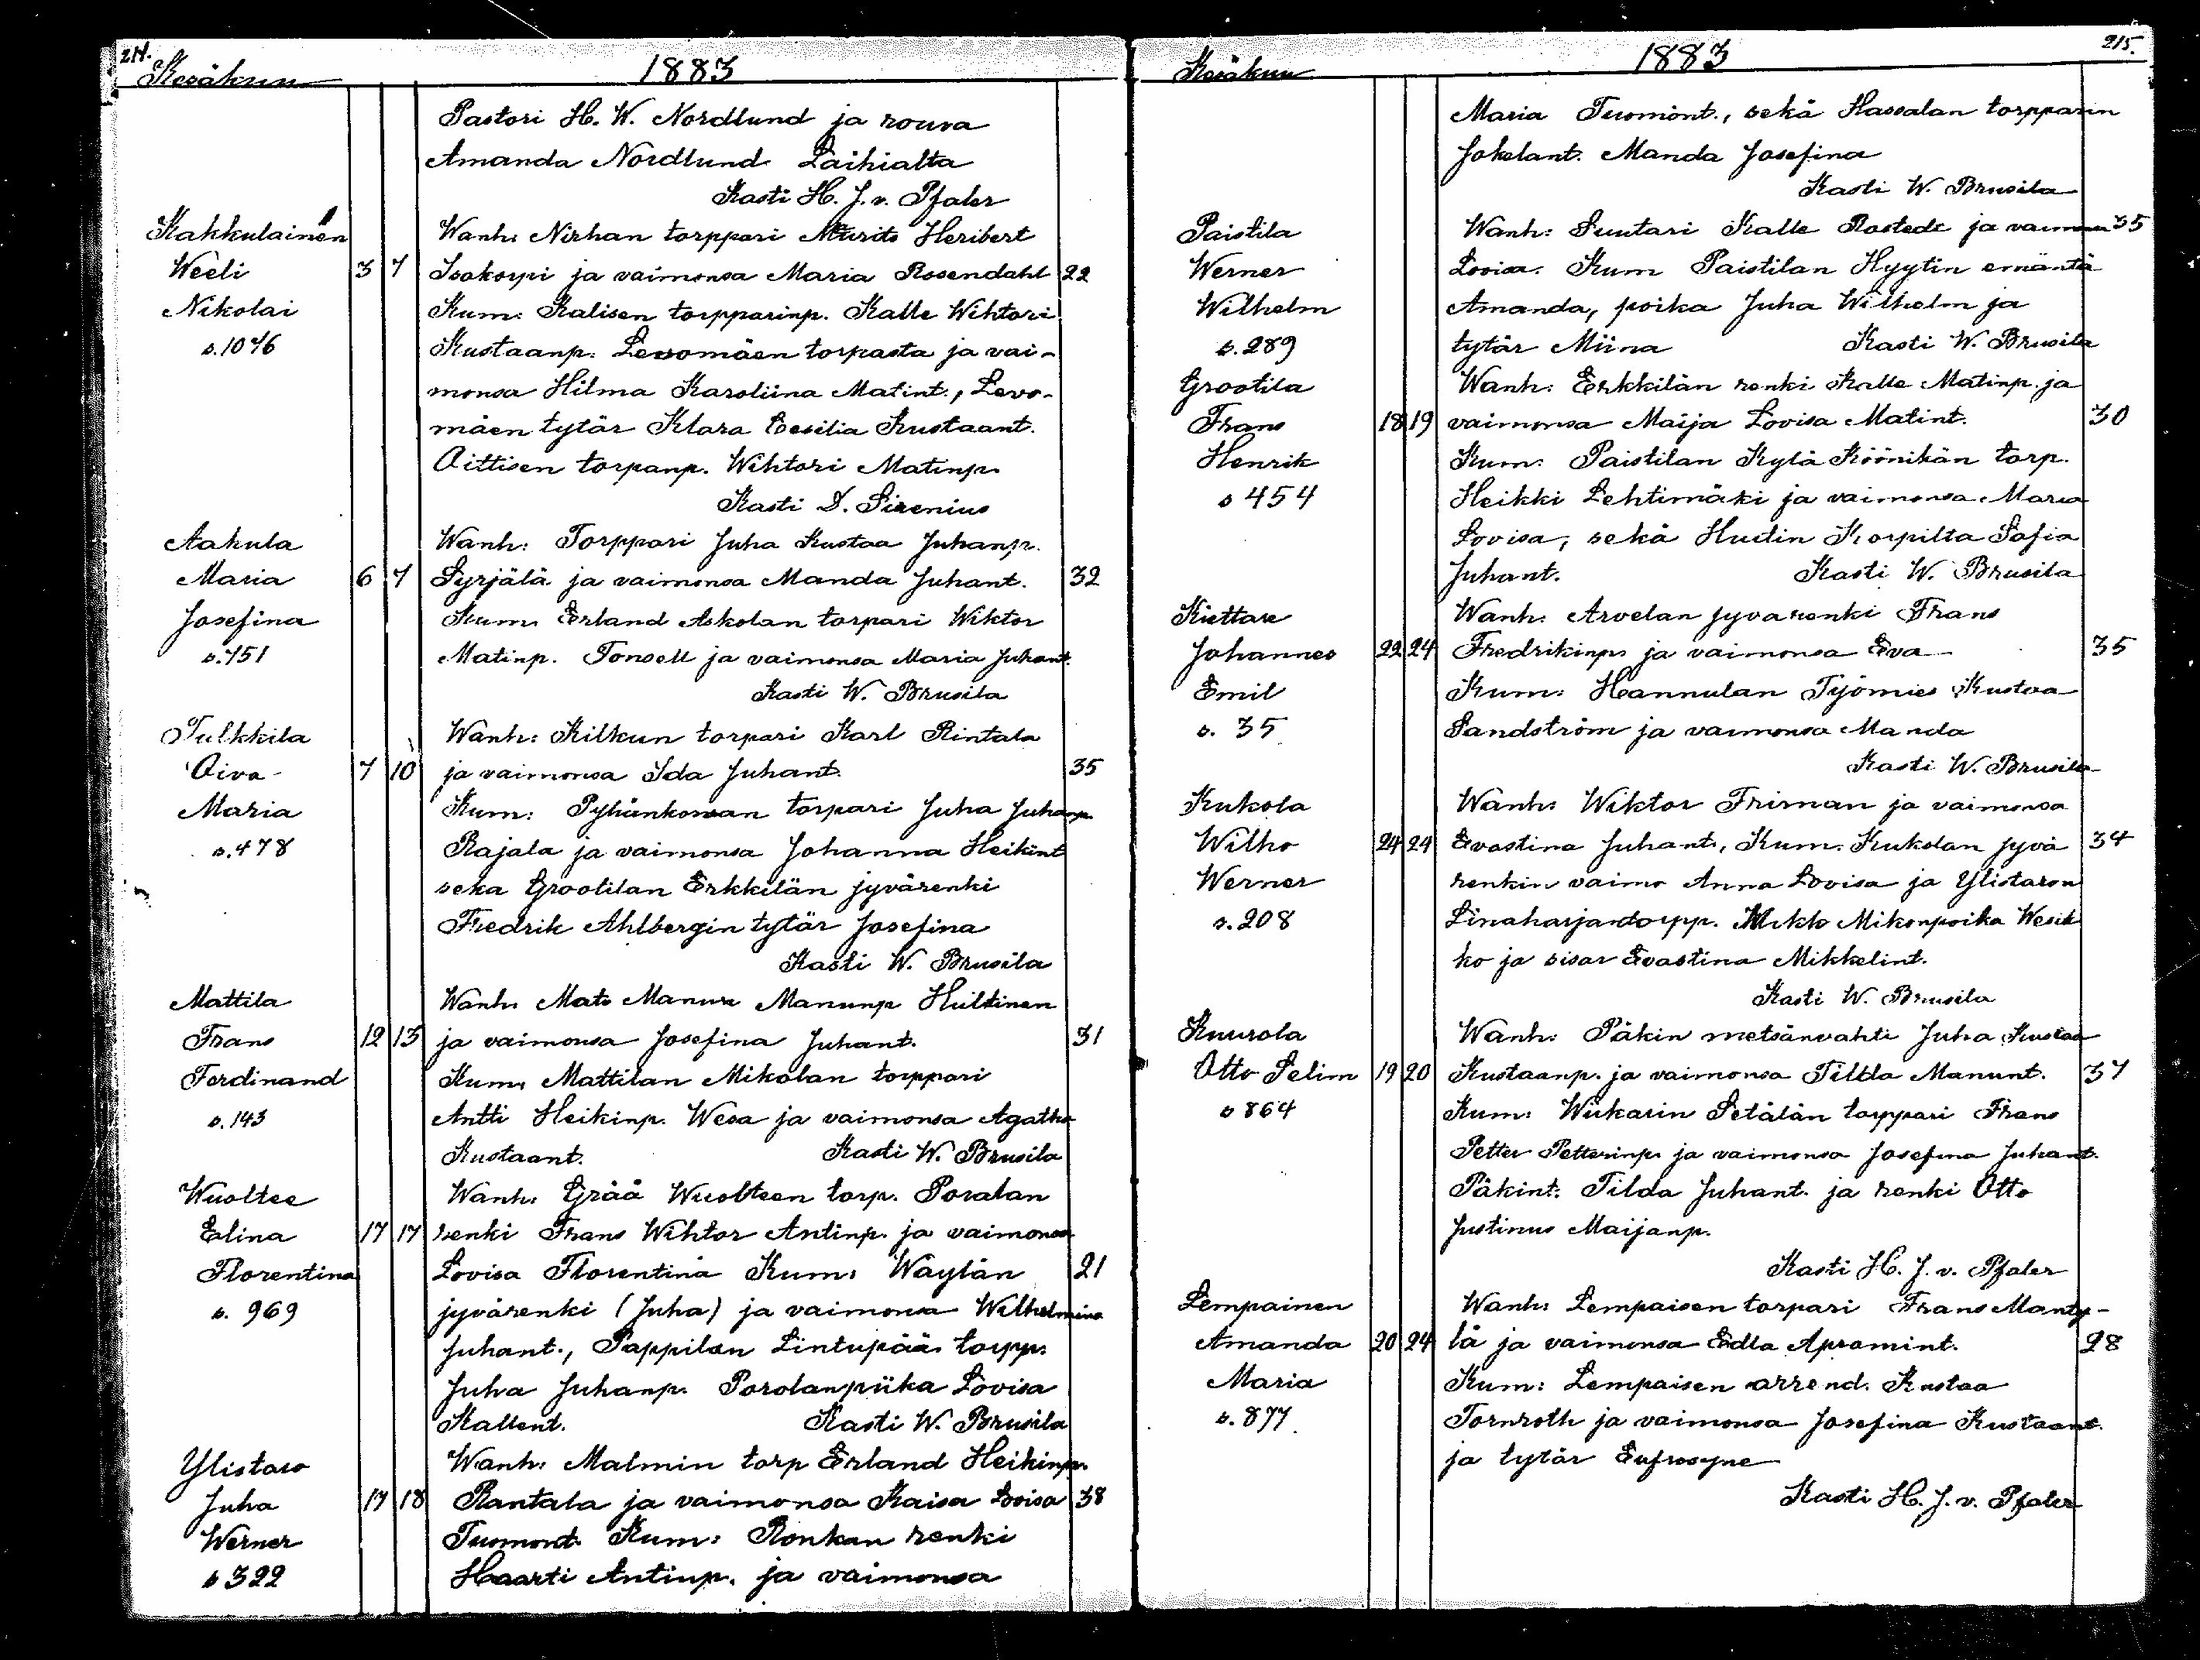 214.
Kesäkuu
1883
Pastori H. W. Nordlund ja rouva
Amanda Nordlund Laihialta
Kasti H. J. v. Pfaler
Kakkulainen Wanh: Nirhan torppari Maurits Heribert
Weeli 3 7 Isokorpi ja vaimonsa Maria Rosendahl 22
Nikolai Kum: Kalisen torpparinp. Kalle Wihtori
s. 1046 Kustaanp. Levomäen torpasta ja vai-
monsa Hilma Karoliina Matint., Levo-
mäen tytär Klara Cesilia Kustaant.
Oittisen torpanp. Wihtori Matinp.
Kasti D. Sirenius
Aakula Wanh: Torppari Juha Kustaa Juhanp.
Maria 6 7 Syrjälä ja vaimonsa Manda Juhant. 32
Josefina Kum: Erland Askolan torpari Wiktor
s. 751 Matinp. Tonsell ja vaimonsa Maria Juhant.
Kasti W. Brusila
Tulkkila Wanh: Kilkun torpari Karl Rintala
Oiva 7 10 ja vaimonsa Ida Juhant. 35
Maria Kum: Pyhänkorvan torpari Juha Juhanp.
s. 478 Rajala ja vaimonsa Johanna Heikint
seka Grootilan Erkkilän jyvärenki
Fredrik Ahlbergin tytär Josefina
Kasti W. Brusila
Mattila Wanh: Mats Manure Manunp Hiltinen
Frans 12 13 ja vaimonsa Josefina Juhant. 31
Ferdinand Kum: Mattilan Mikolan torppari
s. 143 Antti Heikinp. Wesa ja vaimonsa Agatha
Kustaant. Kasti W. Brusila
Wuoltee Wanh: Grää Wuolteen torp. Poralan
Elina 17 17 renki Frans Wihtor Antinp. ja vaimonsa
Florentina Lovisa Florentina Kum: Wäylän 21
s. 969 jyvärenki (Juha) ja vaimonsa Wilhelmina
Juhant., Pappilan Lintupää torpp.
Juha Juhanp. Porolanpiika Lovisa
Kallent. Kasti W. Brusila
Ylistaro Wanh: Malmin torp Erland Heikinp.
Juha 17 18 Rantala ja vaimonsa Kaisa Lovisa 38
Werner Tuomont. Kum: Ronkan renki
s 322 Haarti Antinp. ja vaimonsa
215.
Kesäkuu
1883
Maria Tuomont., sekä Hassalan torpparin
Jokelant. Manda Josefina
Kasti W. Brusila
Paistila Wanh: Suutari Kalle Rostedt ja vaimonsa 35
Werner Lovisa. Kum Paistilan Hyytin emäntä
Wilhelm Amanda, poika Juha Wilhelm ja
s. 289 tytär Miina Kasti W. Brusila
Grootila Wanh: Erkkilän renki Kalle Matinp. ja
Frans 18 19 vaimonsa Maija Lovisa Matint. 30
Henrik Kum: Paistilan Kylä Köönikän torp.
s 454 Heikki Lehtimäki ja vaimonsa Maria
Lovisa, sekä Huilin Korpilta Sofia
Juhant. Kasti W. Brusila
Kiettare Wanh: Arvelan jyvarenki Frans
Johannes 22 24 Fredrikinp. ja vaimonsa Eva 35
Emil Kum: Hannulan Työmies Kustaa
s. 35 Sandström ja vaimonsa Manda
Kasti W. Brusila
Kukola Wanh: Wiktor Friman ja vaimonsa
Wilho 24 24 Evastina Juhant., Kum: Kukolan jyvä 34
Werner renkin vaimo Anna Lovisa ja Ylistaron
s. 208 Linaharjantorpp. Mikko Mikonpoika Wesik
ko ja sisar Evastina Mikkelint.
Kasti W. Brusila
Knurola Wanh: Päkin metsänvahti Juha Kustaa
Otto Selim 19 20 Kustaanp. ja vaimonsa Tilda Manunt. 37
s 864 Kum: Wiikarin Setälän torppari Frans
Petter Petterinp. ja vaimonsa Josefina Juhant.
Päkint. Tilda Juhant. ja renki Otto
Justinus Maijanp.
Kasti H. J. v. Pfaler
Lempainen Wanh: Lempaisen torpari Frans Manty-
Amanda 20 24 lä ja vaimonsa Edla Apramint. 28
Maria Kum: Lempaisen arrend. Kustaa
s. 877 Tornroth ja vaimonsa Josefina Kustaant.
ja tytär Eufrosyne
Kasti H. J. v. Pfaler